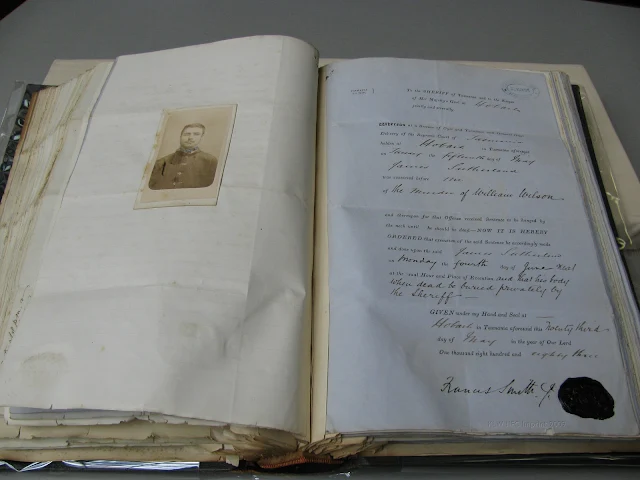 To the SHERIFF of Tasmania and to the Keeper
of Her Majesty's Gaol at Hobart
jointly and severally.
WHEREAS at a Session of Oyer and Terminer and General Gaol
Delivery of the Supreme Court of Tasmania
holden at Hobart in Tasmania aforesaid
on Tuesday the fifteenth day of May
James Sutherland
was convicted before me
of the Murder of William Wilson
and thereupon for that Offence received Sentence to be hanged by
the neck until he should be dead NOW IT IS HEREBY
ORDERED that execution of the said Sentence be accordingly made
and done upon the said James Sutherland
on Monday the fourth day of June next
at the usual Hour and Place of Execution and that his body
when dead be buried privately by
the Sheriff
GIVEN under my Hand and Seal at
Hobart in Tasmania aforesaid this Twenty third
day of May in the year of Our Lord
One thousand eight hundred and eighty three
Francis Smith C.J.